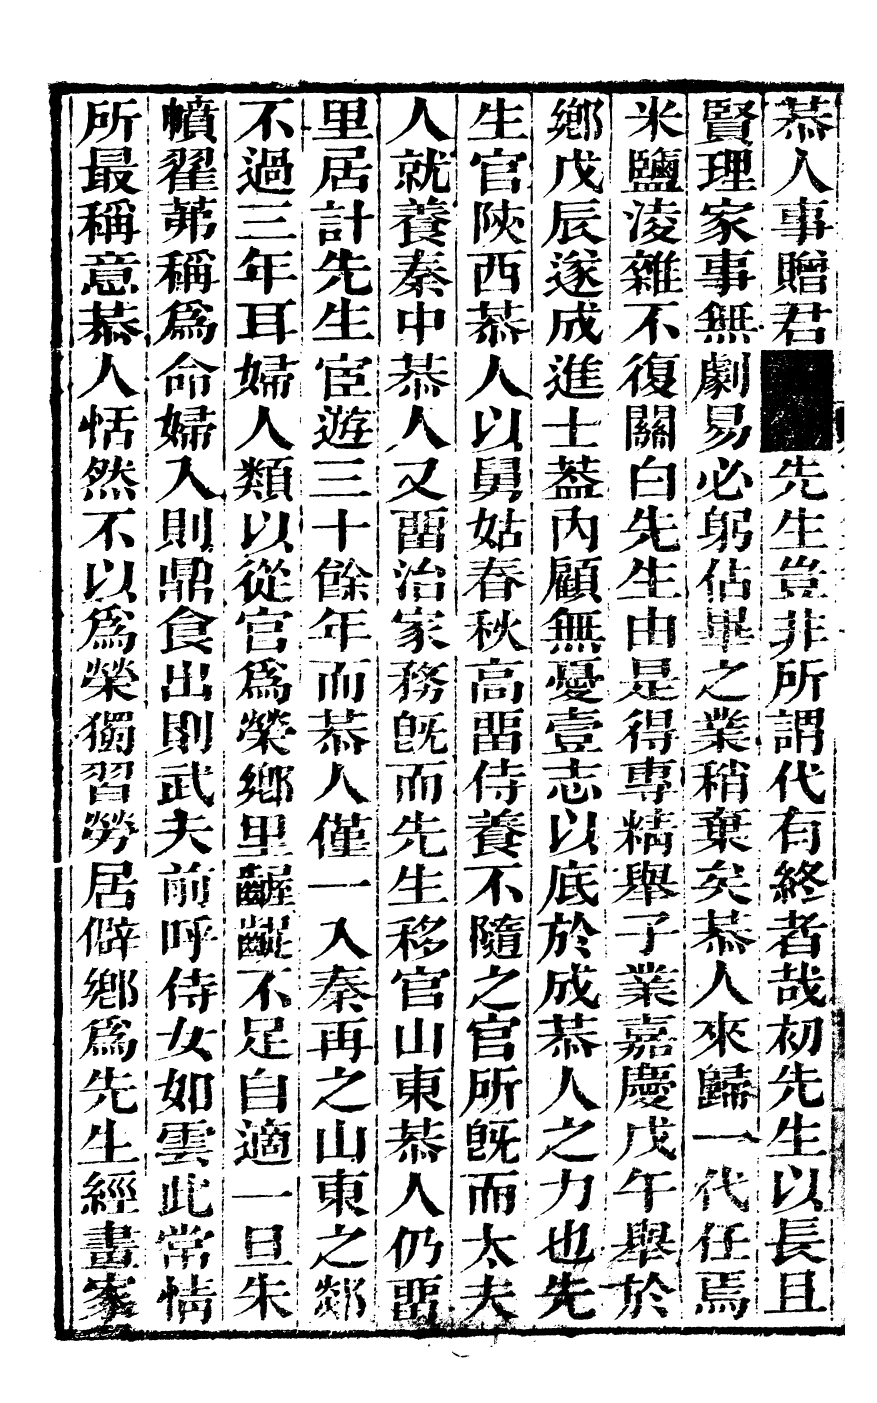 恭人事贈君■■先生豈非所謂代有終者哉初先生以長且
賢理家事無劇易必躬佔畢之業稍棄矣恭人來歸一代任焉
米鹽淩雜不復關白先生由是得專精舉子業嘉慶戊午舉於
鄉戊辰遂成進士葢內顧無憂壹志以底於成恭人之力也先
生官陝西恭人以舅姑春秋高畱侍養不隨之官所旣而太夫
人就養秦中恭人又畱治家務旣而先生移官山東恭人仍畱
里居計先生宦遊三十餘年而恭人僅一入秦再之山東之郯
不過三年耳婦人類以從官爲榮鄉里齷齪不足自適一旦朱
幩翟茀稱爲命婦入則鼎食出則武夫前呼侍女如雲此常情
所最稱意恭人恬然不以爲榮獨習勞居僻鄉爲先生經畫家